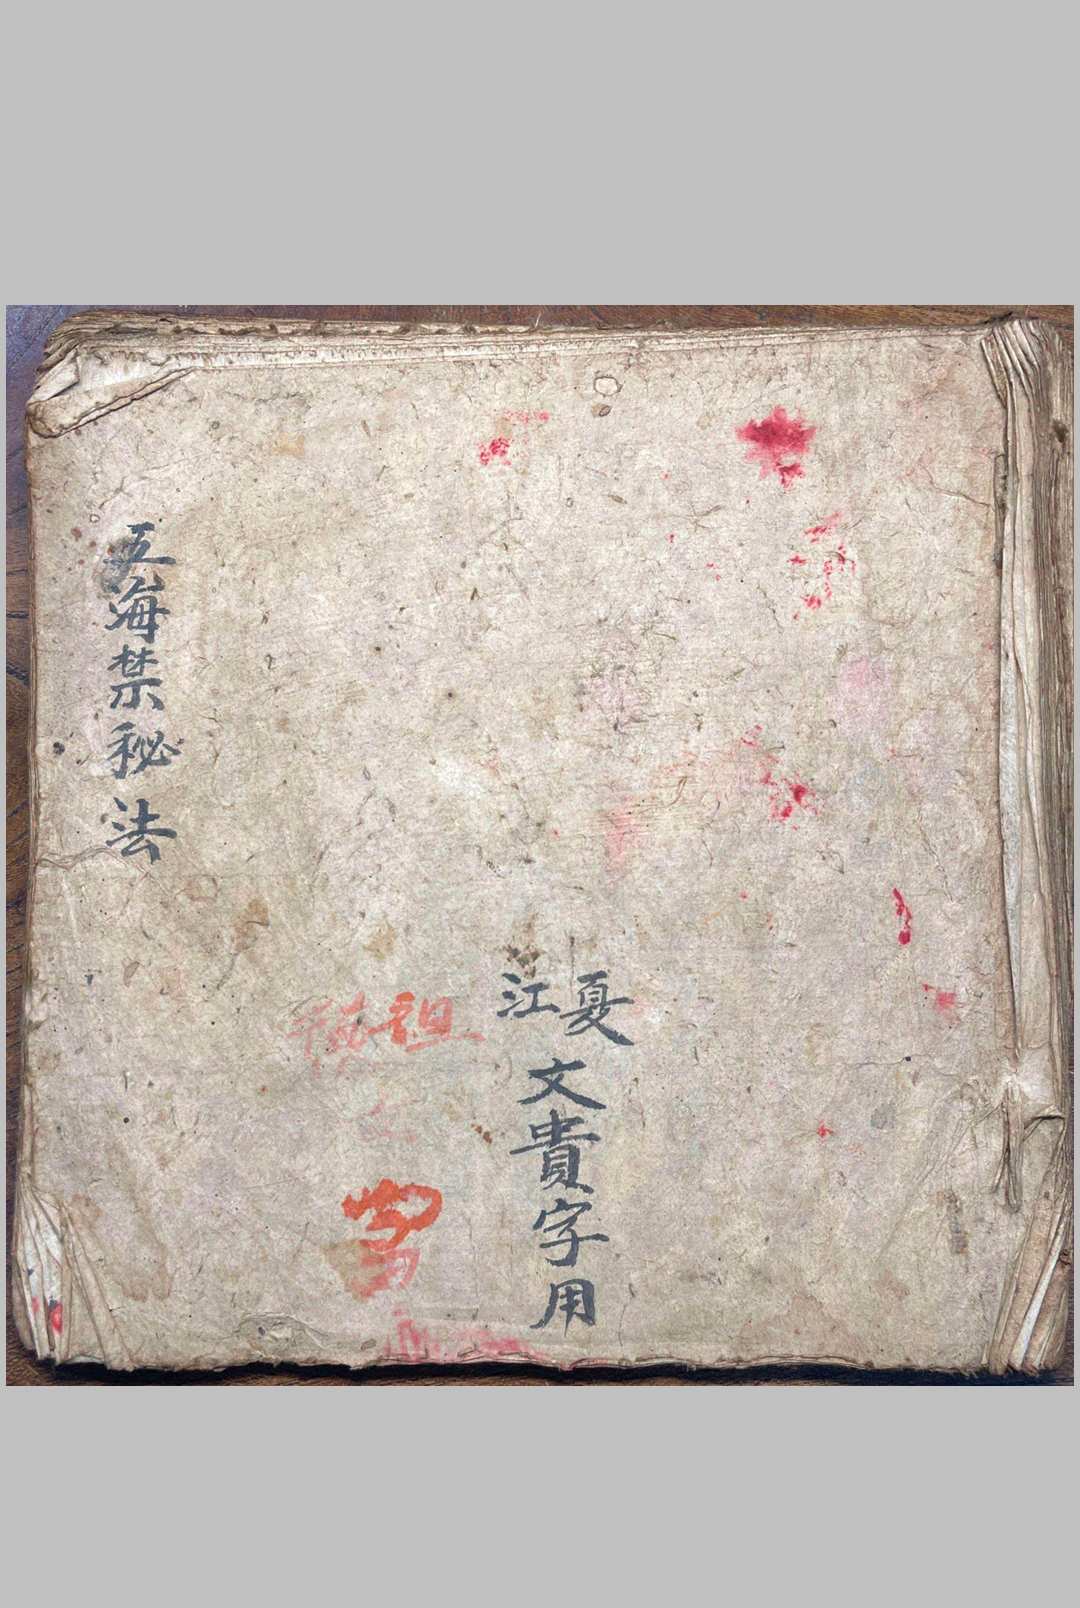 五海禁秘法
江夏
文貴字用
祖